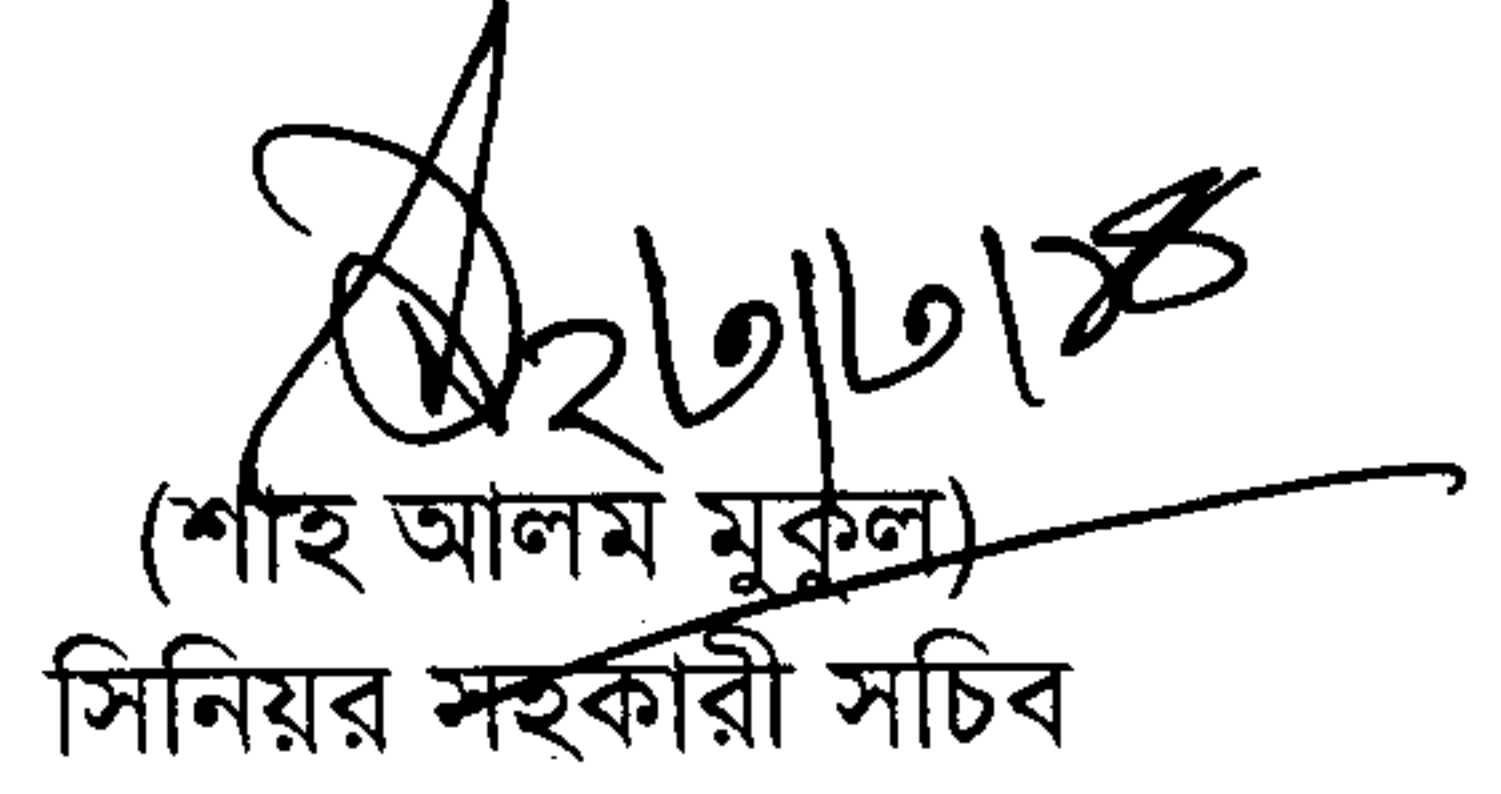 ২৩/৩/১৪
(শাহ আলম মুকুল)
সিনিয়র সহকারী সচিব